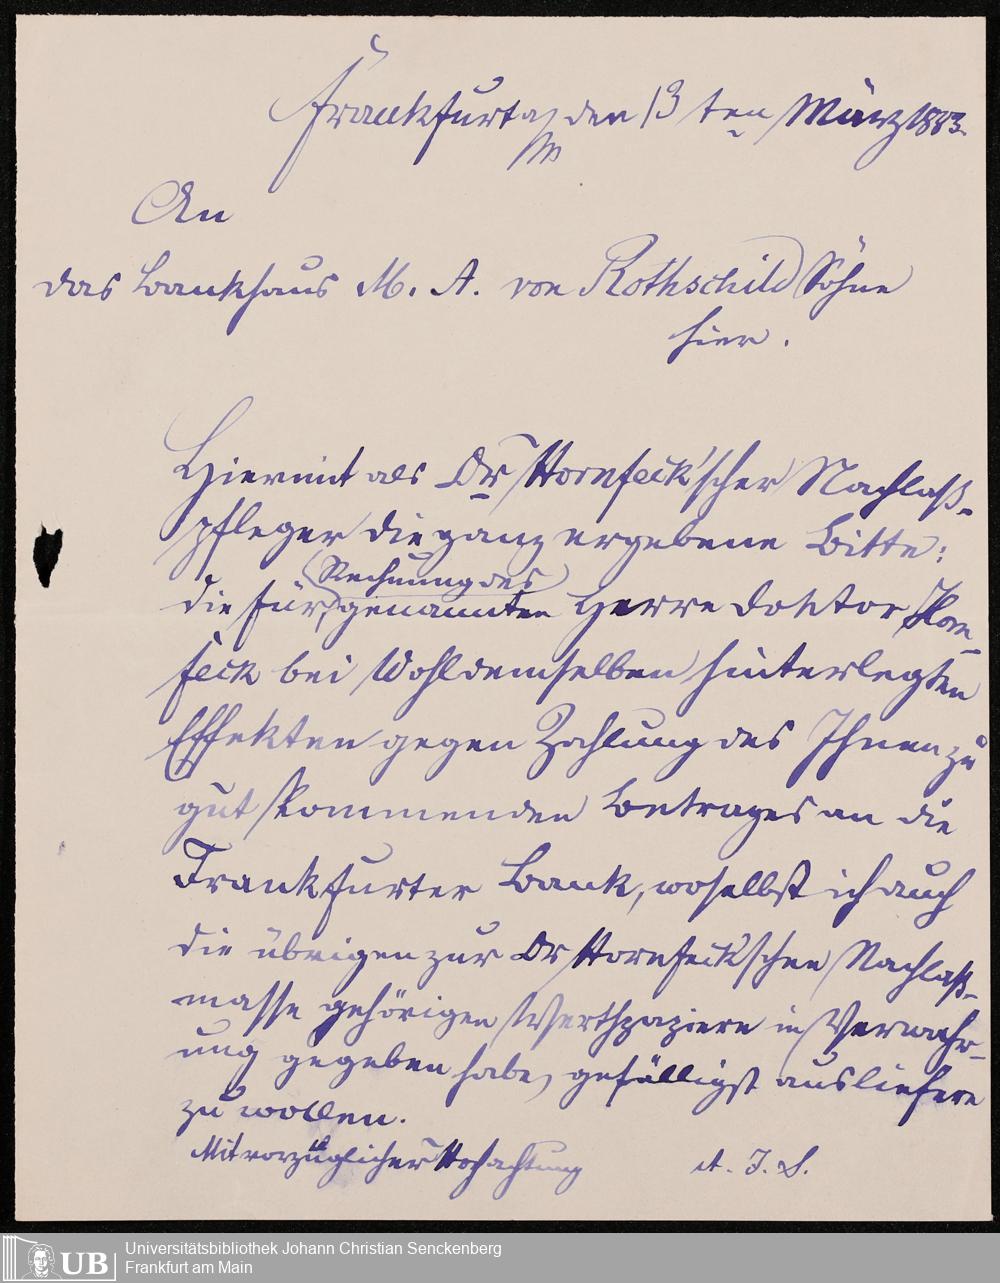 Frankfurt a/M den 13ten März 1883.
An
das Bankhaus M. A. von Rothschild Söhne
hier.
Hiermit als Dr Hornfeck'scher Nachlaß-
pfleger die ganz ergebene Bitte:
Rechnung des
die für genannten Herrn Doktor Horn-
feck bei Wohldemselben hinterlegten
Effekten gegen Zahlung des Ihnen zu
gut kommenden Betrages an die
Frankfurter Bank, woselbst ich auch
die übrigen zur Dr Hornfeck'schen Nachlaß-
masse gehörigen Werthpapiere in Verwahr-
ung gegeben habe, gefälligst ausliefern
zu wollen.
Mit vorzüglicher Hochachtung
A. J. S.
UB
Universitätsbibliothek Johann Christian Senckenberg
Frankfurt am Main